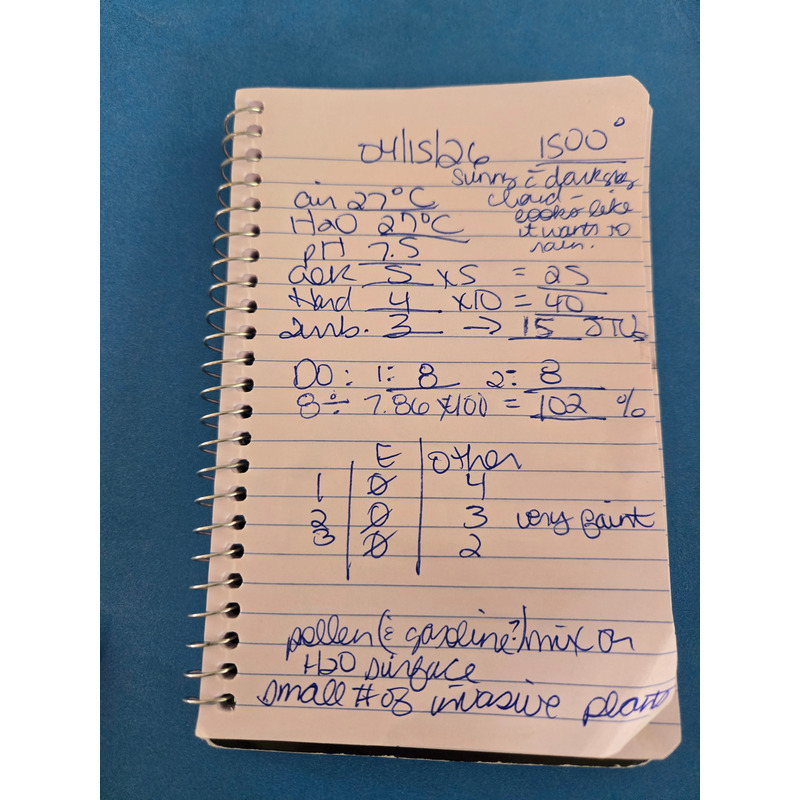 04/15/26 1500°
Sunny c̄ dark sky
air 27°C cloud -
H2O 27°C looks like
it wants to
pH 7.5 rain.
alk 5 x5 = 25
Hard 4 x10 = 40
Turb. 3 → 15 JTUs
DO: 1: 8 2: 8
8 ÷ 7.86 x100 = 102 %
E Other
1 0 4
2 0 3 very faint
3 0 2
pollen (& gasoline?) mix on
H2O surface
small # of invasive plants